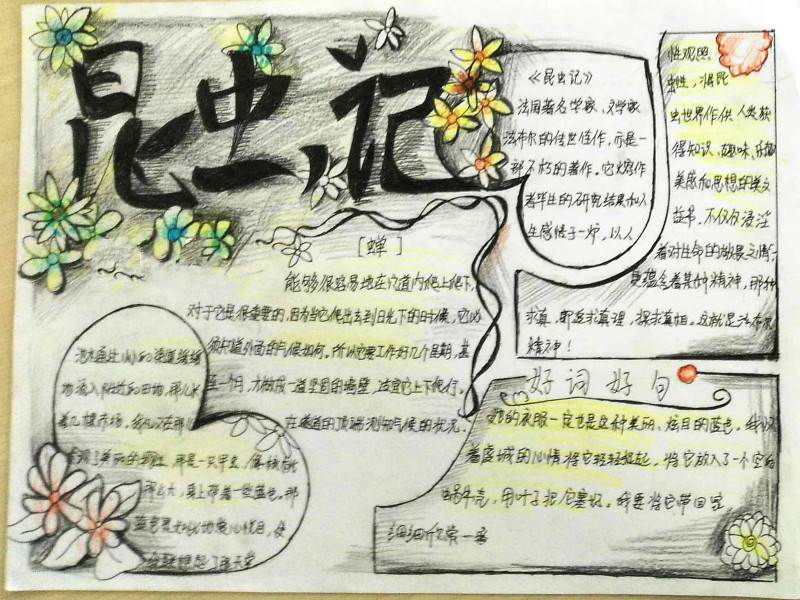 昆虫记
《昆虫记》
法国著名学家、文学家
法布尔的传世佳作，亦是一
部不朽的著作。它熔作
者毕生的研究结果和人
生感悟于一炉，以人
性观照
虫性，将昆
虫世界作供人类获
得知识、趣味、
美感和思想的美文
益书，不仅仅浸淫
着对生命的敬畏之情，
更蕴含着某种精神，那种
求真，即追求真理，探求真相。这就是法布尔
精神！
[蝉]
能够很容易地在穴道内爬上爬下，
对于它是很重要的，因为当它爬出去到日光下的时候，它必
须知道外面的气候如何。所以它要工作好几个星期，甚
至一个月，才做成一道坚固的墙壁，适宜它上下爬行。
在隧道的顶端 测知气候的状况。
好词好句
她的衣服一定也是这种美丽、炫目的蓝色。我
着虔诚的心情将它轻轻捡起，将它放入了一个空的
蜗牛壳，用叶子把它塞好。我要将它带回家
细细欣赏一番
池水通过小小的渠道缓缓
地流入附近的田地，那儿长
着几棵 我又在那儿
发现了美丽的 那是一只甲虫，像核桃
那么大，身上带着一些蓝色。那
蓝色是如此地赏心悦目，使
联想起了那天堂